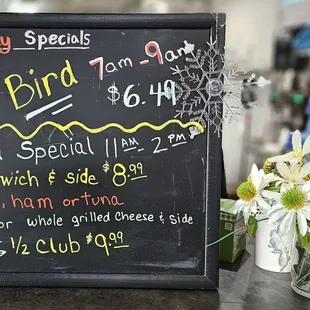 Specials
Bird
7am - 9am
$6.49
Special 11AM - 2PM
& side $8.99
ham or tuna
or whole grilled cheese & side
1/2 Club $9.99